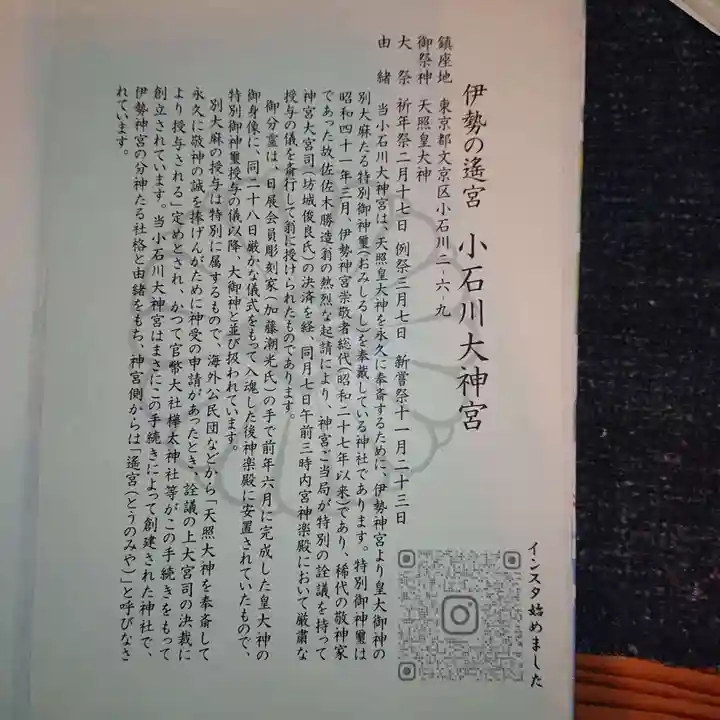 伊勢の遙宮 小石川大神宮
鎮座地 東京都文京区小石川二-六-九
御祭神 天照皇大神
大祭 祈年祭二月十七日 例祭三月七日 新嘗祭十一月二十三日
由緒 当小石川大神宮は、天照皇大神を永久に奉斎するために、伊勢神宮より皇大御神の
別大麻たる特別御神璽(おみしるし)を奉戴している神社であります。特別御神璽は
昭和四十一年三月、伊勢神宮崇敬者総代(昭和二十七年以来)であり、稀代の敬神家
であった故佐佐木勝造翁の熱烈な起請により、神宮ご当局が特別の詮議を持って
神宮大宮司(坊城俊良氏)の決済を経、同月七日午前三時内宮神楽殿において厳粛な
授与の儀を斎行して翁に授けられたものであります。
御分霊は、日展会員彫刻家(加藤潮光氏)の手で前年六月に完成した皇大神の
御身像に、同二十八日厳かな儀式をもって入魂した後神楽殿に安置されていたもので、
特別御神璽授与の儀以降、大御神と並び扱われています。
別大麻の授与は特別に属するもので、海外公民団などから「天照大神を奉斎して
永久に敬神の誠を捧げんがために神受の申請があったとき、詮議の上大宮司の決裁に
より授与される」定めとされ、かつて官幣大社樺太神社等がこの手続きをもって
創立されています。当小石川大神宮はまさにこの手続きによって創建された神社で、
伊勢神宮の分神たる社格と由緒をもち、神宮側からは「遙宮(とうのみや)」と呼びなさ
れています。
インスタ始めました